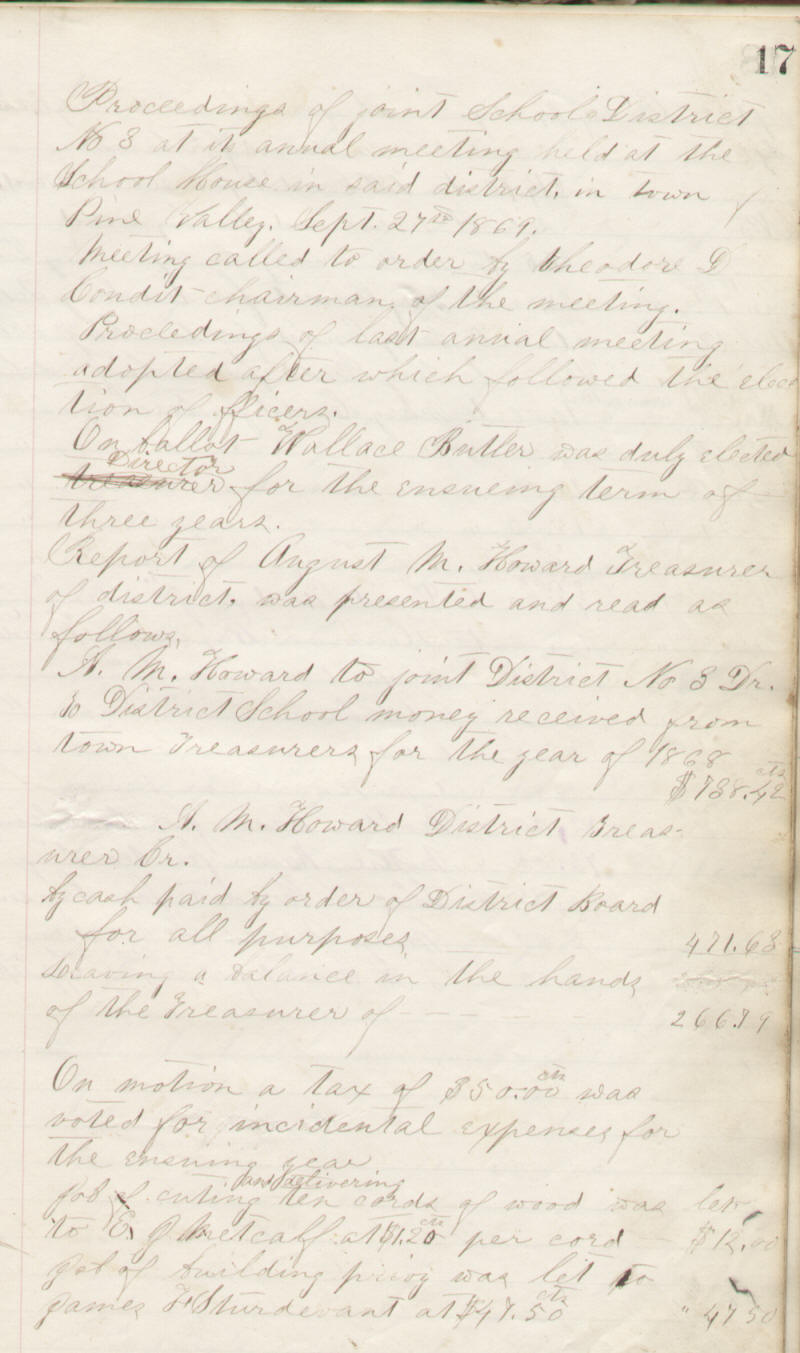 17
Proceedings of joint School District
No 3 at its anual meeting held at the
School House in said district, in town of
Pine Valley. Sept. 27th 1869.
Meeting called to order by Theodore D
Condit chairman of the meeting.
Procledings of last anual meeting
adopted after which followed the elec
tion of officers.
On ballot Wallace Butler was duly elected
Director
treasurer for the ensueing term of
three years.
Report of August M. Howard Treasurer
of district, was presented and read as
follows,
A. M. Howard to joint District No 3 Dr.
to District School money received from
town Treasurers for the year of 1868
cts
$738.42
A. M. Howard District Treas-
urer Cr.
by cash paid by order of District Board
for all purposes 471.63
Leaving a balance in the hands
of the Treasurer of - - - - 266.79
On motion a tax of $50.00 cts was
voted for incidental expenses for
the ensuing year
and delivering
Job of cuting ten cords of wood was let
to E. J. Metcalf at $1.20 cts per cord $12.00
Job of building privy was let to
James F Sturdevant at $47.50 cts " 47 50